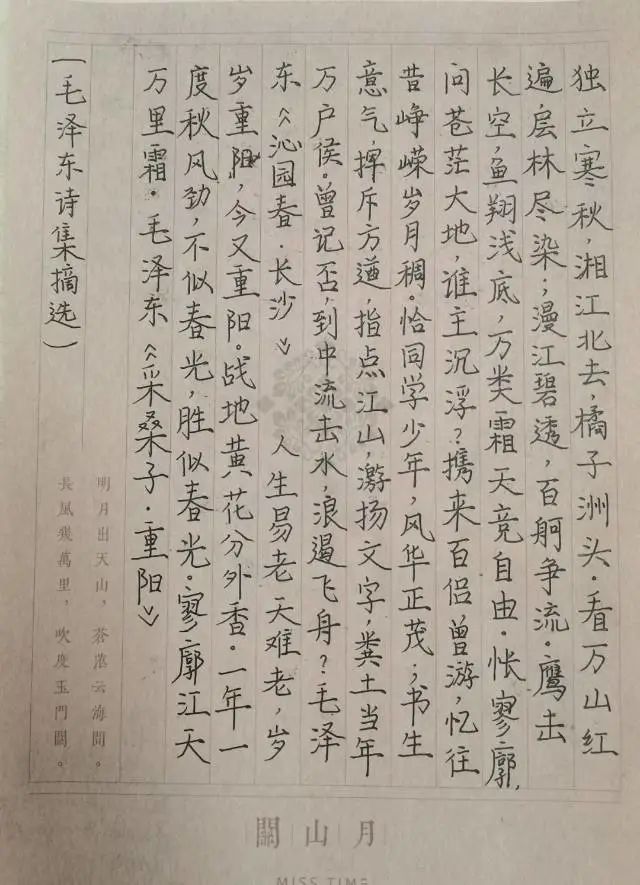 独立寒秋，湘江北去，橘子洲头。看万山红
遍，层林尽染；漫江碧透，百舸争流。鹰击
长空，鱼翔浅底，万类霜天竞自由。怅寥廓，
问苍茫大地，谁主沉浮？携来百侣曾游，忆往
昔峥嵘岁月稠。恰同学少年，风华正茂；书生
意气，挥斥方遒，指点江山，激扬文字，粪土当年
万户侯。曾记否，到中流击水，浪遏飞舟？毛泽
东《沁园春·长沙》 人生易老天难老，岁
岁重阳，今又重阳。战地黄花分外香。一年一
度秋风劲，不似春光，胜似春光。寥廓江天
万里霜。毛泽东《采桑子·重阳》
（毛泽东诗集摘选）
明月出天山，蒼茫云海間。
長風幾萬里，吹度玉門關。
關山月
MISS TIME